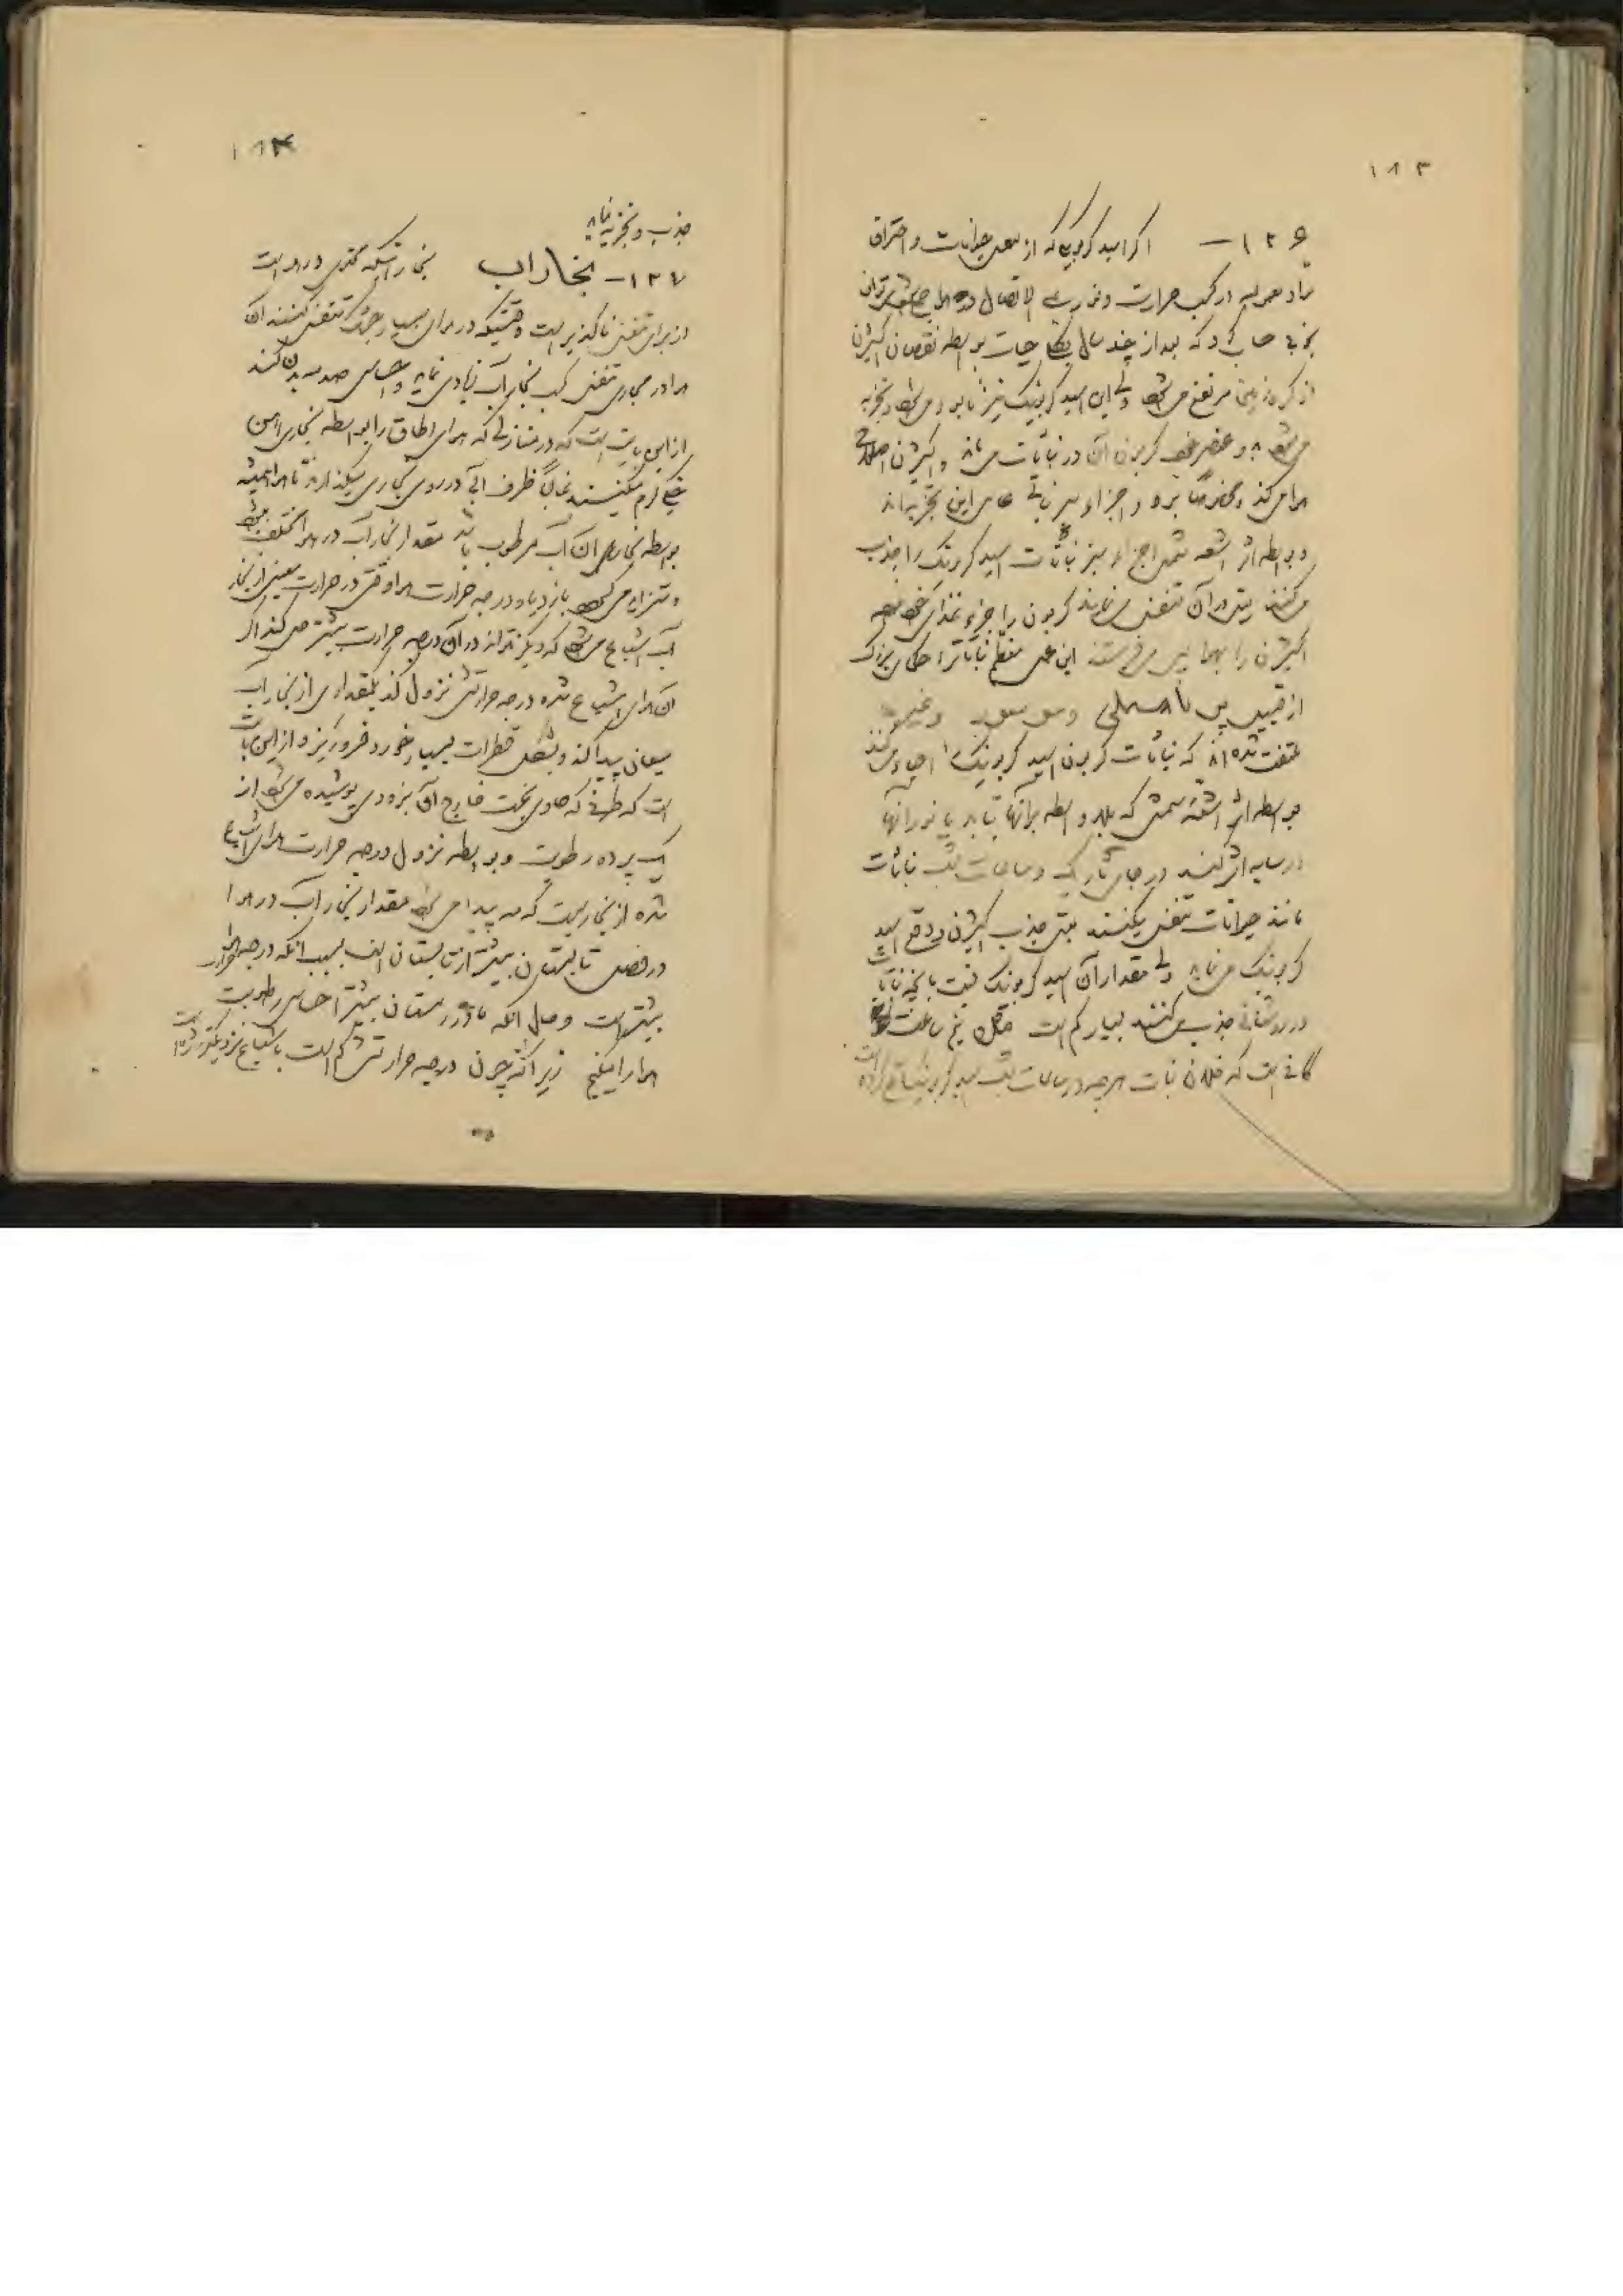 ۱۸۳
۱۲۶ — اگر اسید کربونیکی که از تنفس حیوانات و احتراق
مواد معمولیه از کسب حرارت و غیره علی الاتصال در هوا جمع میشود میتوان
بخوبی حساب کرد که بعد از چند سال بکلی حیات بواسطه نقصان اکسیژن
از کره زمین مرتفع میشود ولی این اسید کربونیک نیز نابود میشود و تجزیه
میشود و عنصر کربون آن در نباتات میماند و اکسیژن
هوا میکند و مخصوصا برگ و اجزاء سبز نباتی عامل این تجزیه‌اند
و بواسطه اثر اشعه شمس اجزاء سبز نباتات اسید کربونیک را جذب
میکنند یعنی در آن تنفس مینمایند کربون را جزو غذای خود
اکسیژن را بهوا پس میفرستند این عمل معظم نباتات را حکمای بزرگ
از قبیل و غیره
ملتفت شده‌اند که نباتات کربون اسید کربونیک را احیاء میکنند
بواسطه اثر اشعه شمس که بلاواسطه برآنها بتابد یا نور آنها
در سایه اثر کنند در جای تاریک و ساعات شب نباتات
مانند حیوانات تنفس میکنند یعنی جذب اکسیژن و دفع اسید
کربونیک مینماید ولی مقدار آن اسید کربونیک نسبت بآنچه نباتات
در روشنائی جذب میکنند بسیار کم است مثلا نیم ساعت
کافی است که فلان نبات هرچه در ساعات شب اسید کربونیک دفع کرده است
۱۸۴
جذب و تجزیه نماید
۱۲۷ — بخار آب بخار آبیکه محتوی در هوا است
از برای تنفس ناگذیر است وقتیکه در هوای بسیار خشک تنفس کنند آن
هوا در مجاری تنفس کسب بخار آب زیادی نماید و احساس صدمه بدن کند
از این بابت است که در منازلی که هوای اطاق را بواسطه بخاری آهن
خیلی گرم میکنند غالبا ظرف آبی در روی بخاری میگذارند تا هوا همیشه
بواسطه بخار همان آب مرطوب باشد مقدار بخار آب در هوا مختلف میشود
و متزاید میشود بازدیاد درجه حرارت هوا وقتی در حرارت معینی از بخار
آب اشباع میشود که دیگر نتواند در آن درجه حرارت بیشتر اخذ کند اگر
آن هوای اشباع شده درجه حرارتش نزول کند یکمقداری از بخار آب
میعان پیدا کند و بشکل قطرات بسیار خورد فرو ریزد و از این بابت
است که ظرفی که حاوی یخست خارج آن بزودی پوشیده میشود از
یک پرده رطوبت و بواسطه نزول درجه حرارت هوای اشباع
شده از بخاریست که مه پیدا میشود مقدار بخار آب در هوا
در فصل تابستان بیشتر از تابستان است بسبب آنکه درجه حرارت هوا
بیشتر است و حال آنکه ما در زمستان بیشتر احساس رطوبت
هوا را میکنیم زیرا که چون درجه حرارتش کم است باشباع نزدیکتر شده است